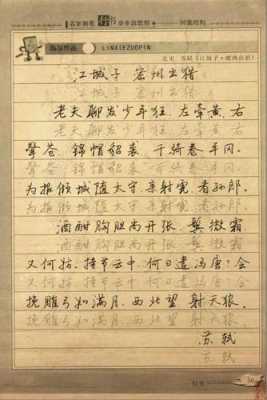 LINXIEZUOPIN
北宋 苏轼《江城子·密州出猎》
江城子 密州出猎
老夫聊发少年狂,左牵黄,右
擎苍,锦帽貂裘,千骑卷平冈。
为报倾城随太守,亲射虎,看孙郎。
酒酣胸胆尚开张,鬓微霜
又何妨。持节云中,何日遣冯唐?会
挽雕弓如满月,西北望,射天狼。
苏轼
苏轼